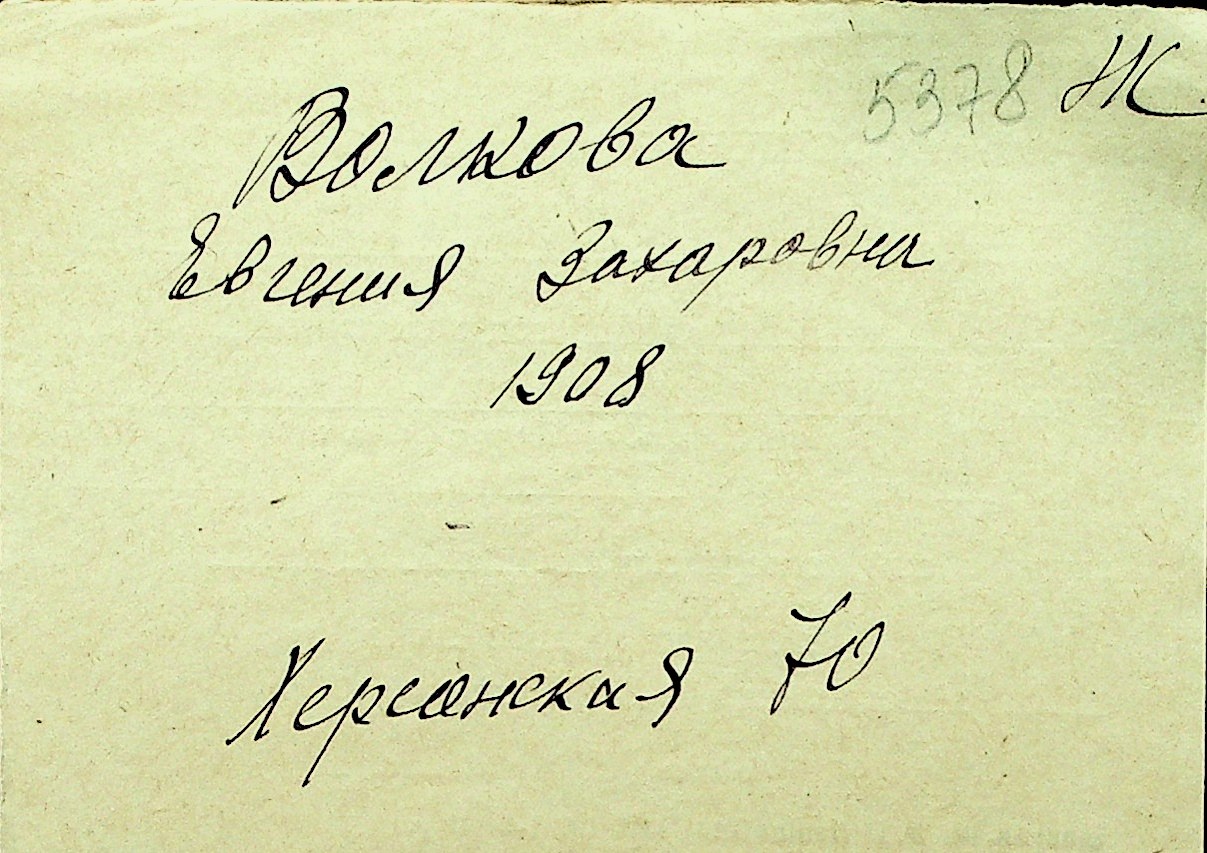 5378 Ж
Волкова
Евгения Захаровна
1908
Херсонская 70